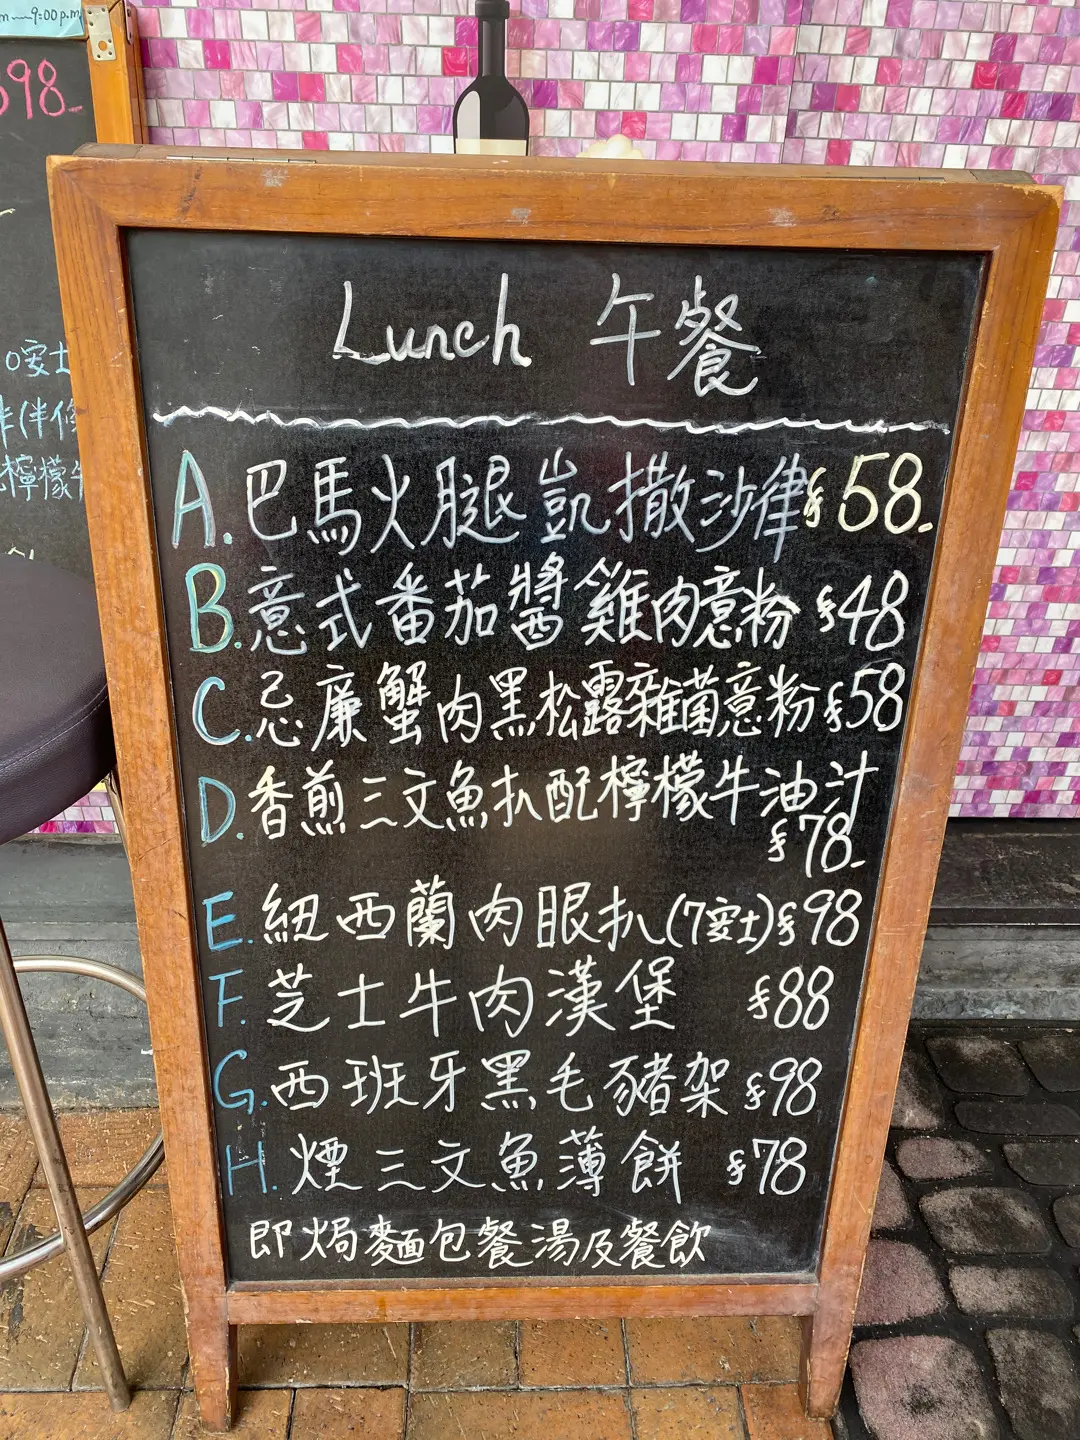 m—9:00 p.m
98-
0安士
檸檬牛
Lunch 午餐
A. 巴馬火腿凱撒沙律 $58.-
B. 意式番茄醬雞肉意粉 $48
C. 忌廉蟹肉黑松露雜菌意粉 $58
D. 香煎三文魚扒配檸檬牛油汁
$78.-
E. 紐西蘭肉眼扒(7安士) $98
F. 芝士牛肉漢堡 $88
G. 西班牙黑毛豬架 $98
H. 煙三文魚薄餅 $78
即焗麵包餐湯及餐飲